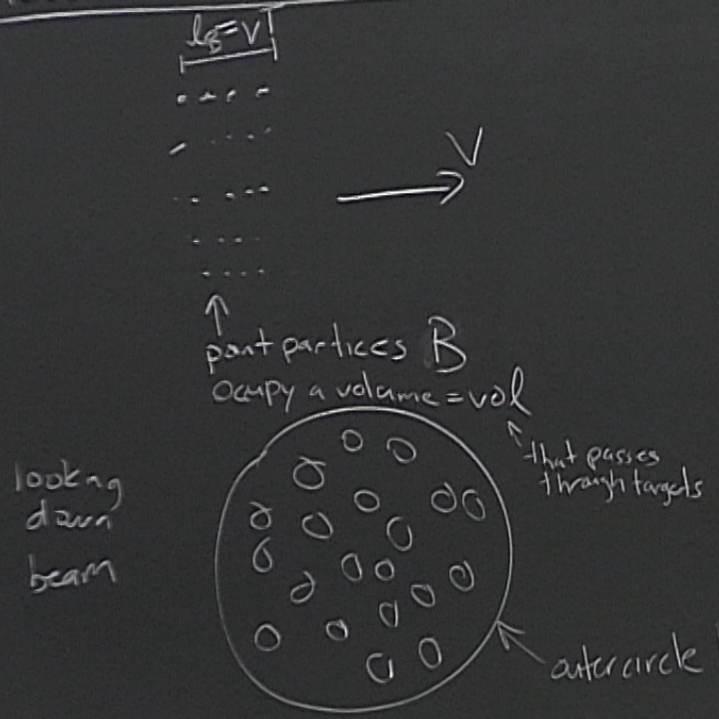 l_B = VT
V
point partices B
occupy a volume = vol
that passes
through targets
looking
down
beam
outer circle